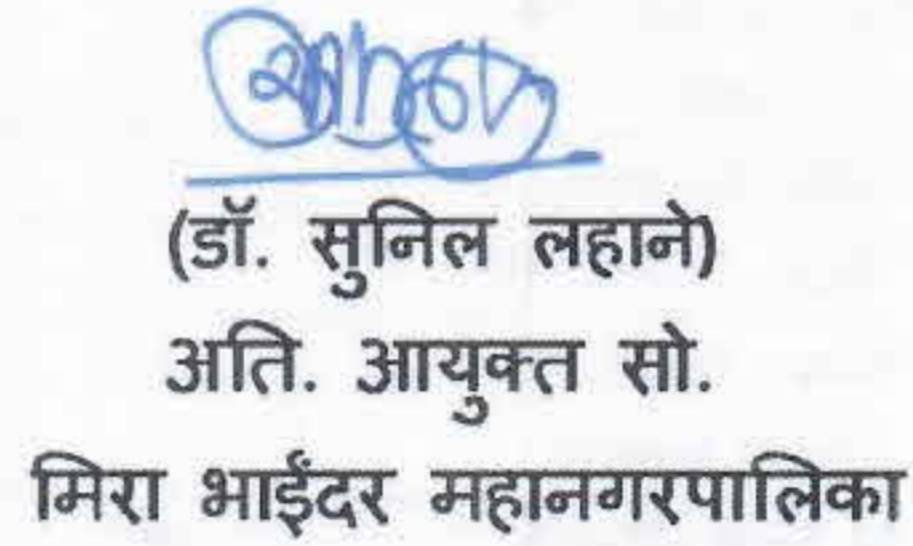 (डॉ. सुनिल लहाने)
अति. आयुक्त सो.
मिरा भाईंदर महानगरपालिका